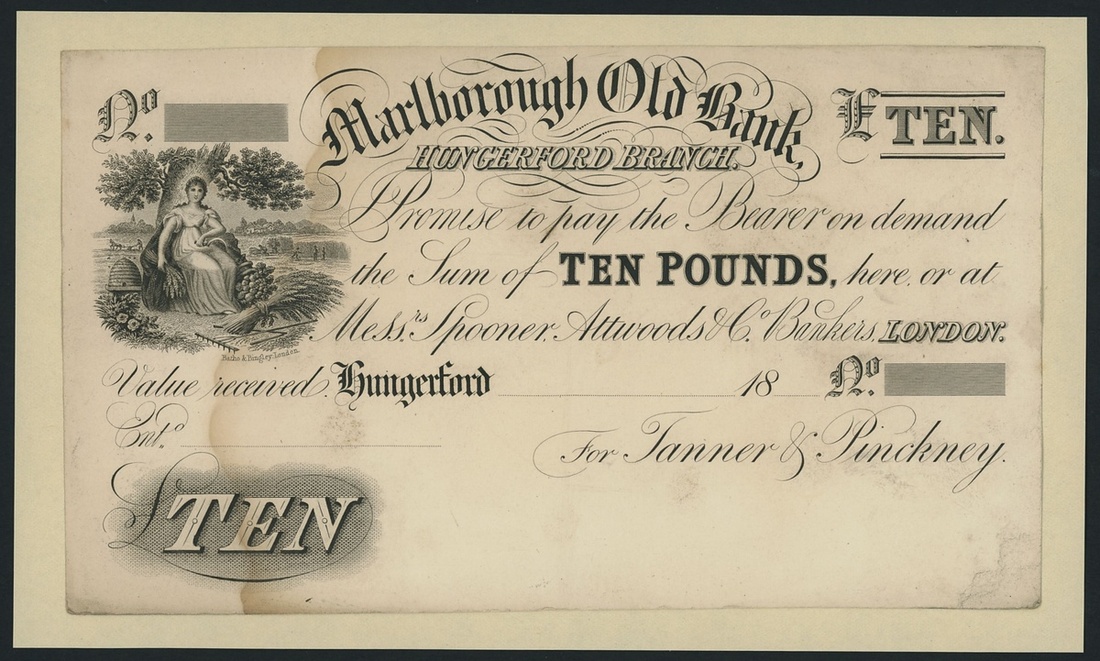 No.
Marlborough Old Bank,
£TEN.
HUNGERFORD BRANCH.
I Promise to pay the Bearer on demand
the Sum of TEN POUNDS, here or at
Messrs Spooner, Attwoods & Co. Bankers, LONDON.
Baths & Bingley, London.
Value received. Hungerford 18 No.
Entd.
For Tanner & Pinckney.
£TEN